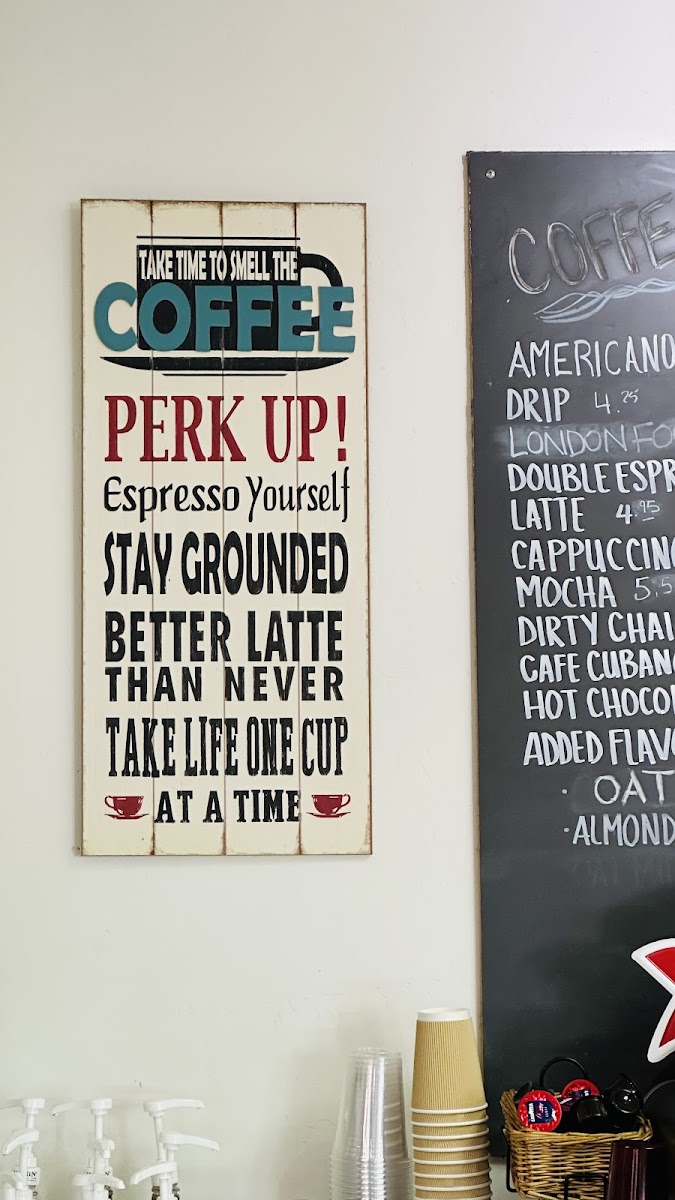 TAKE TIME TO SMELL THE
COFFEE
PERK UP!
Espresso Yourself
STAY GROUNDED
BETTER LATTE
THAN NEVER
TAKE LIFE ONE CUP
AT A TIME
COFFE
AMERICANO
DRIP 4.25
LONDON FO
DOUBLE ESPR
LATTE 4.95
CAPPUCCINO
MOCHA 5.5
DIRTY CHAI
CAFE CUBAN
HOT CHOCO
ADDED FLAV
· OAT
· ALMOND